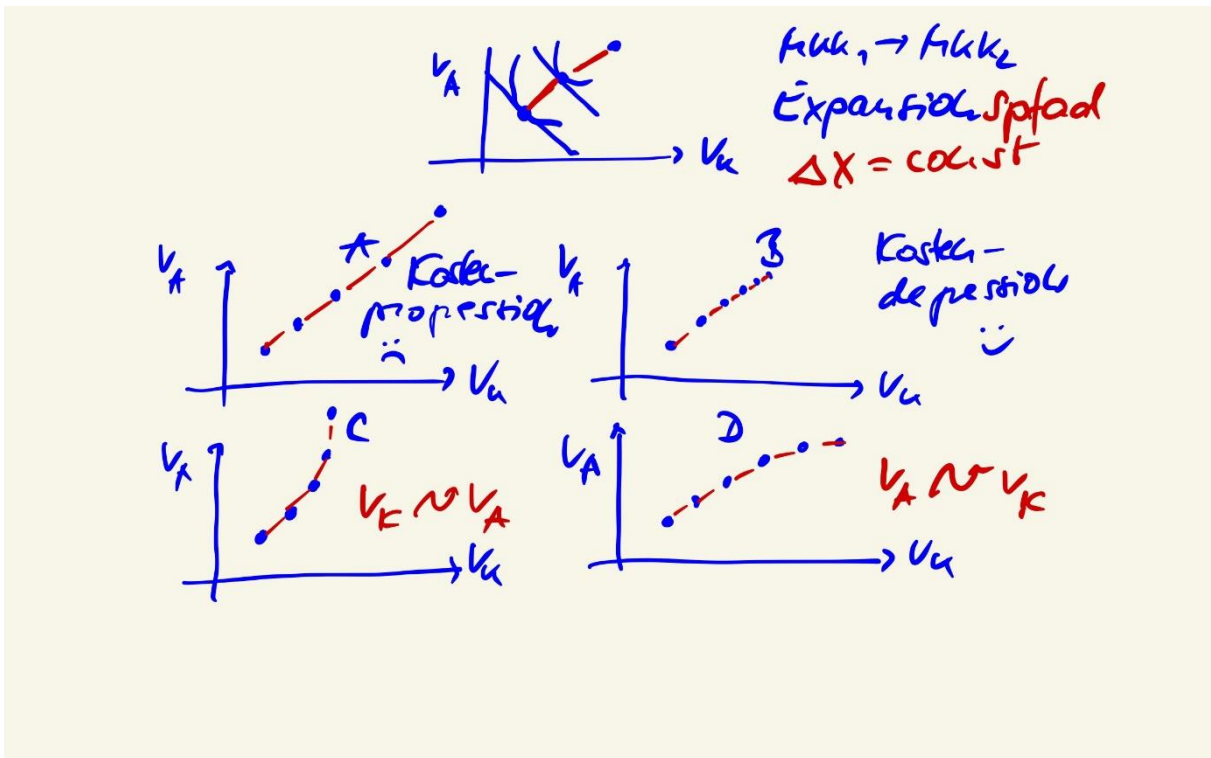 V_A
MKK₁ → MKK₂
Expansionspfad
V_K
ΔX = const
V_A
A
Kosten-
progression
V_K
V_A
B
Kosten-
depression
V_K
V_A
C
V_K ~ V_A
V_K
V_A
D
V_A ~ V_K
V_K